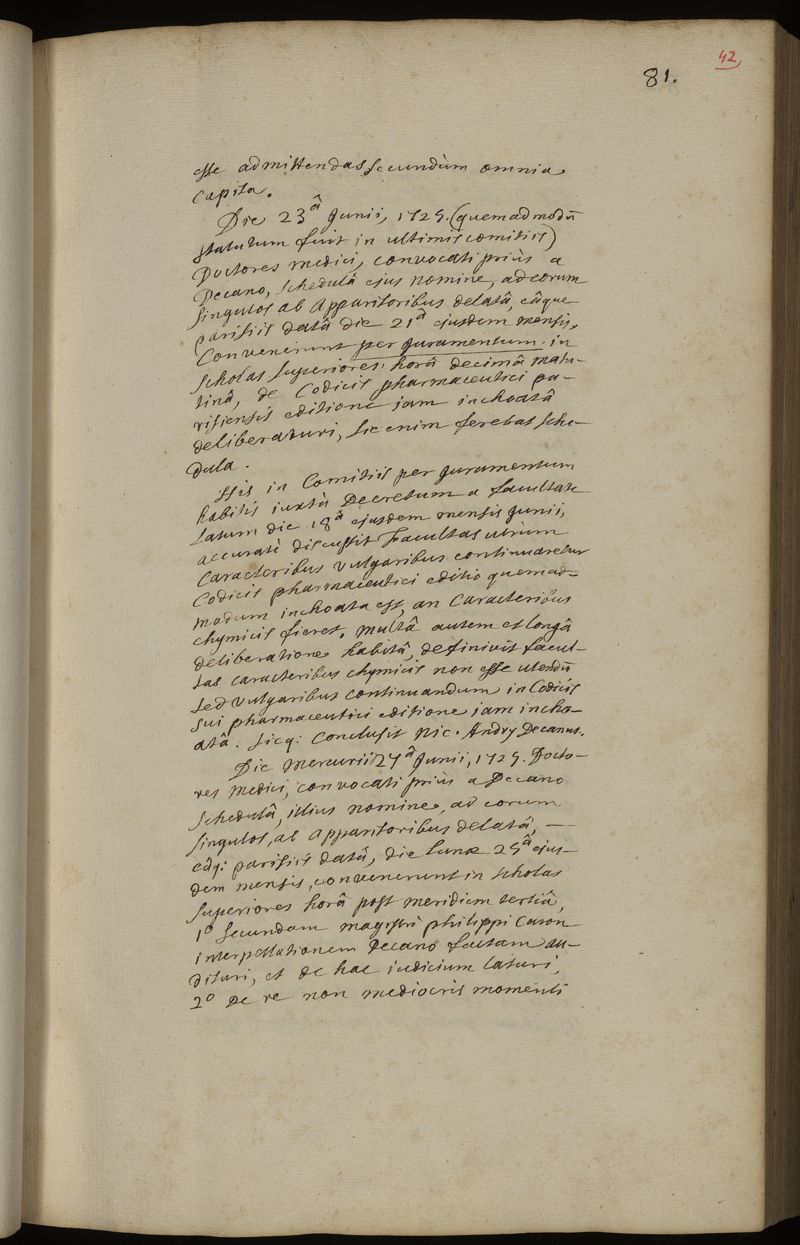 42
81.
esse admittendas secundùm omnia
Capita.
Die 23â Junii, 1725. (quemadmodū
statutum fuit in ultimis comitiis)
Doctores medici, convocati priùs a
Decano, schedulâ ejus nomine, ad eorum
singulos ab Apparitoribus delatâ, eâque
parisiis datâ die 21â ejusdem mensis,
Convenerunt per juramentum in
Scholas superiores, horâ decimâ matu-
tinâ, de Codicis pharmaceutici pa-
risiensis editione jam inchoatâ
deliberaturi, sic enim ferebat sche-
dula.
His in Comitiis per juramentum
habitis iuxtà Decretum a facultate
latum die 18â ejusdem mensis Junii,
accuratè discussit Facultas utrùm
Caracteribus vulgaribus continuaretur
Codicis pharmaceutici editio quemad-
modum inchoata est, an Caracteribus
chymicis fieret. multâ autem et longâ
deliberatione habitâ, definivit facul-
tas caracteribus chymicis non esse utendū
sed vulgaribus continuandum in Codicis
sui pharmaceutici editione jam incho-
atâ. sicq: Conclusit Nic. Andry Decanus.
Die Mercurii 27â Junii, 1725. Docto-
res medici, convocati priùs a Decano
schedulâ, illius nomine, ad eorum
singulos, ab Apparitoribus delatâ, —
eâq: parisiis datâ, die lunæ 25â ejus-
dem mensis, convenerunt in scholas
superiores horâ post meridiem tertiâ,
1º secundam magistri philippi Caron
interpellationem Decano factam au-
dituri, et de hac iudicium laturi,
2º De re non mediocris momenti